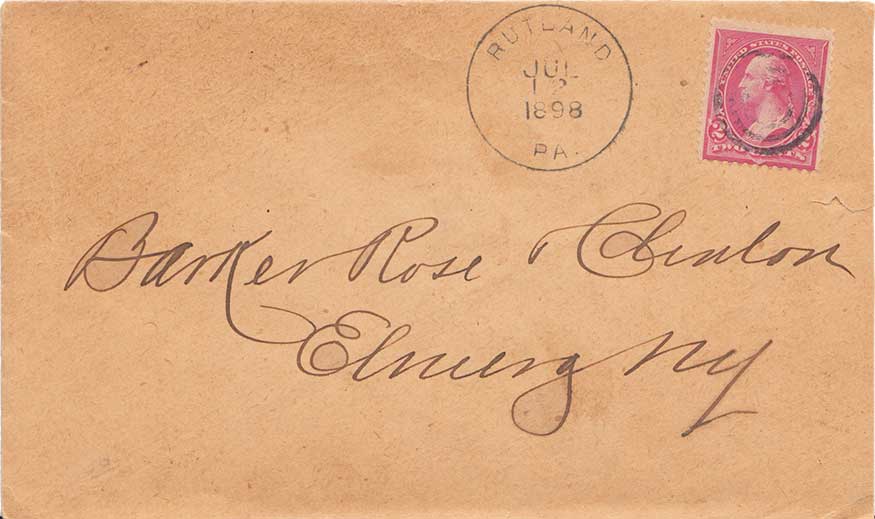 RUTLAND
JUL
12
1898
PA.
UNITED STATES POSTAGE
2 TWO CENTS 2
Barker Rose & Clinton
NY